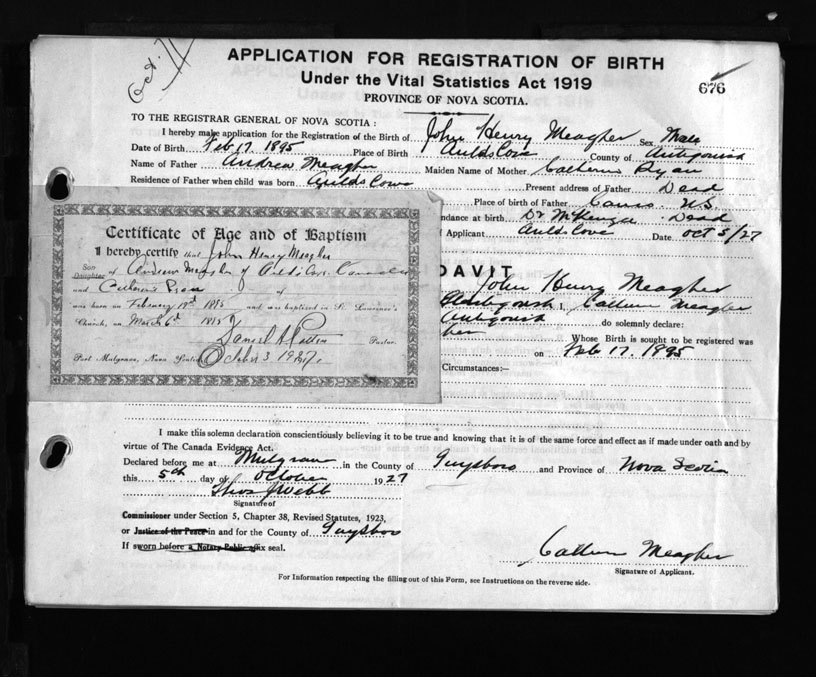 Oct. 11
APPLICATION FOR REGISTRATION OF BIRTH
Under the Vital Statistics Act 1919
676
PROVINCE OF NOVA SCOTIA.
TO THE REGISTRAR GENERAL OF NOVA SCOTIA :
I hereby make application for the Registration of the Birth of John Henry Meagher Sex Male
Date of Birth Feb 17. 1895 Place of Birth Aulds Cove County of Antigonish
Name of Father Andrew Meagher Maiden Name of Mother Catherine Ryan
Residence of Father when child was born Aulds Cove Present address of Father Dead
Place of Birth of Father Canso N.S.
ndance at birth Dr McKenzie Dead
f Applicant Aulds Cove Date Oct 5/27
Certificate of Age and of Baptism
I hereby certify that John Henry Meagher
Son
Daughter of Andrew Meagher of Aulds Cove
and Catherine Ryan of
was born on February 17th 1895 and was baptised in St. Lawrence's
Church, on March 6th 1895
Pastor.
Port Mulgrave, Nova Scotia October 3 1927.
DAVIT
John Henry Meagher
Antigonish I, Cathern Meagher
Antigonish do solemnly declare:
her Whose Birth is sought to be registered was
on Feb 17. 1895
Circumstances:—
I make this solemn declaration conscientiously believing it to be true and knowing that it is of the same force and effect as if made under oath and by
virtue of The Canada Evidence Act.
Declared before me at Mulgrave in the County of Guysboro and Province of Nova Scotia
this 5th day of October 1927
Thos J Webb
Signature of
Commissioner under Section 5, Chapter 38, Revised Statutes, 1923,
or Justice of the Peace in and for the County of Guysboro
If sworn before a Notary Public affix seal.
Cathern Meagher
Signature of Applicant.
For Information respecting the filling out of this Form, see Instructions on the reverse side.